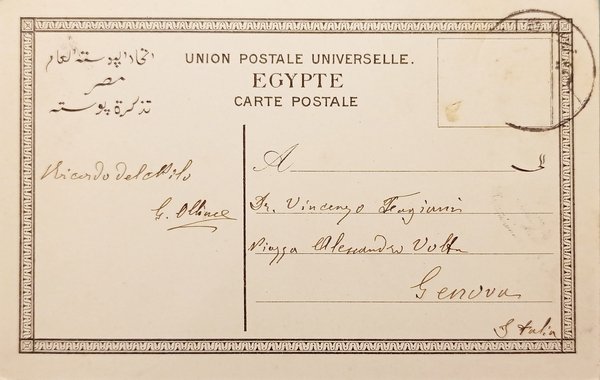 اتحاد البوسته العام
مصر
تذكرة بوسته
UNION POSTALE UNIVERSELLE.
EGYPTE
CARTE POSTALE
Ricordo del Nilo
G.
A
الى
Dr. Vincenzo
Piazza Alessandro Volta
Genova
Italia